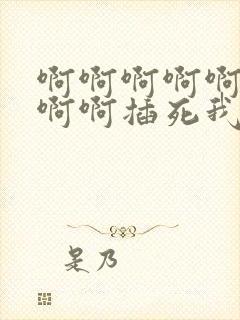 啊啊啊啊啊
啊啊插死我
是乃